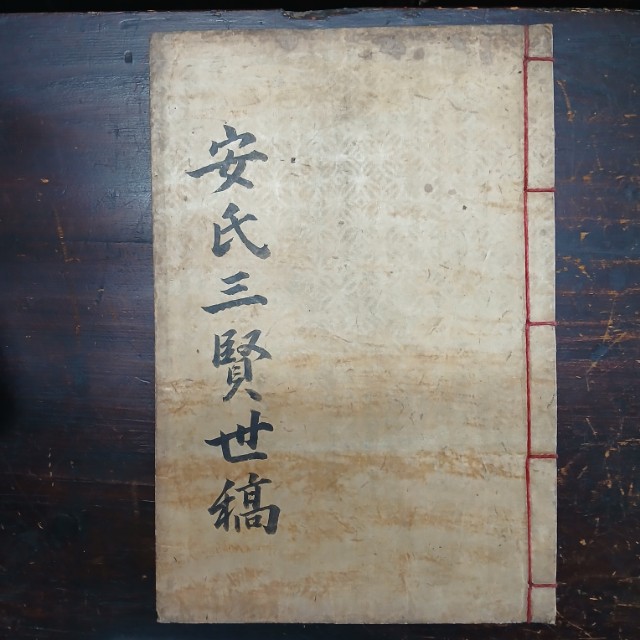 安氏三賢世稿